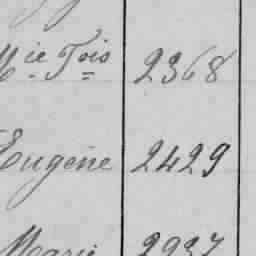 Mie Fois 2368
Eugène 2429
Marie 2937